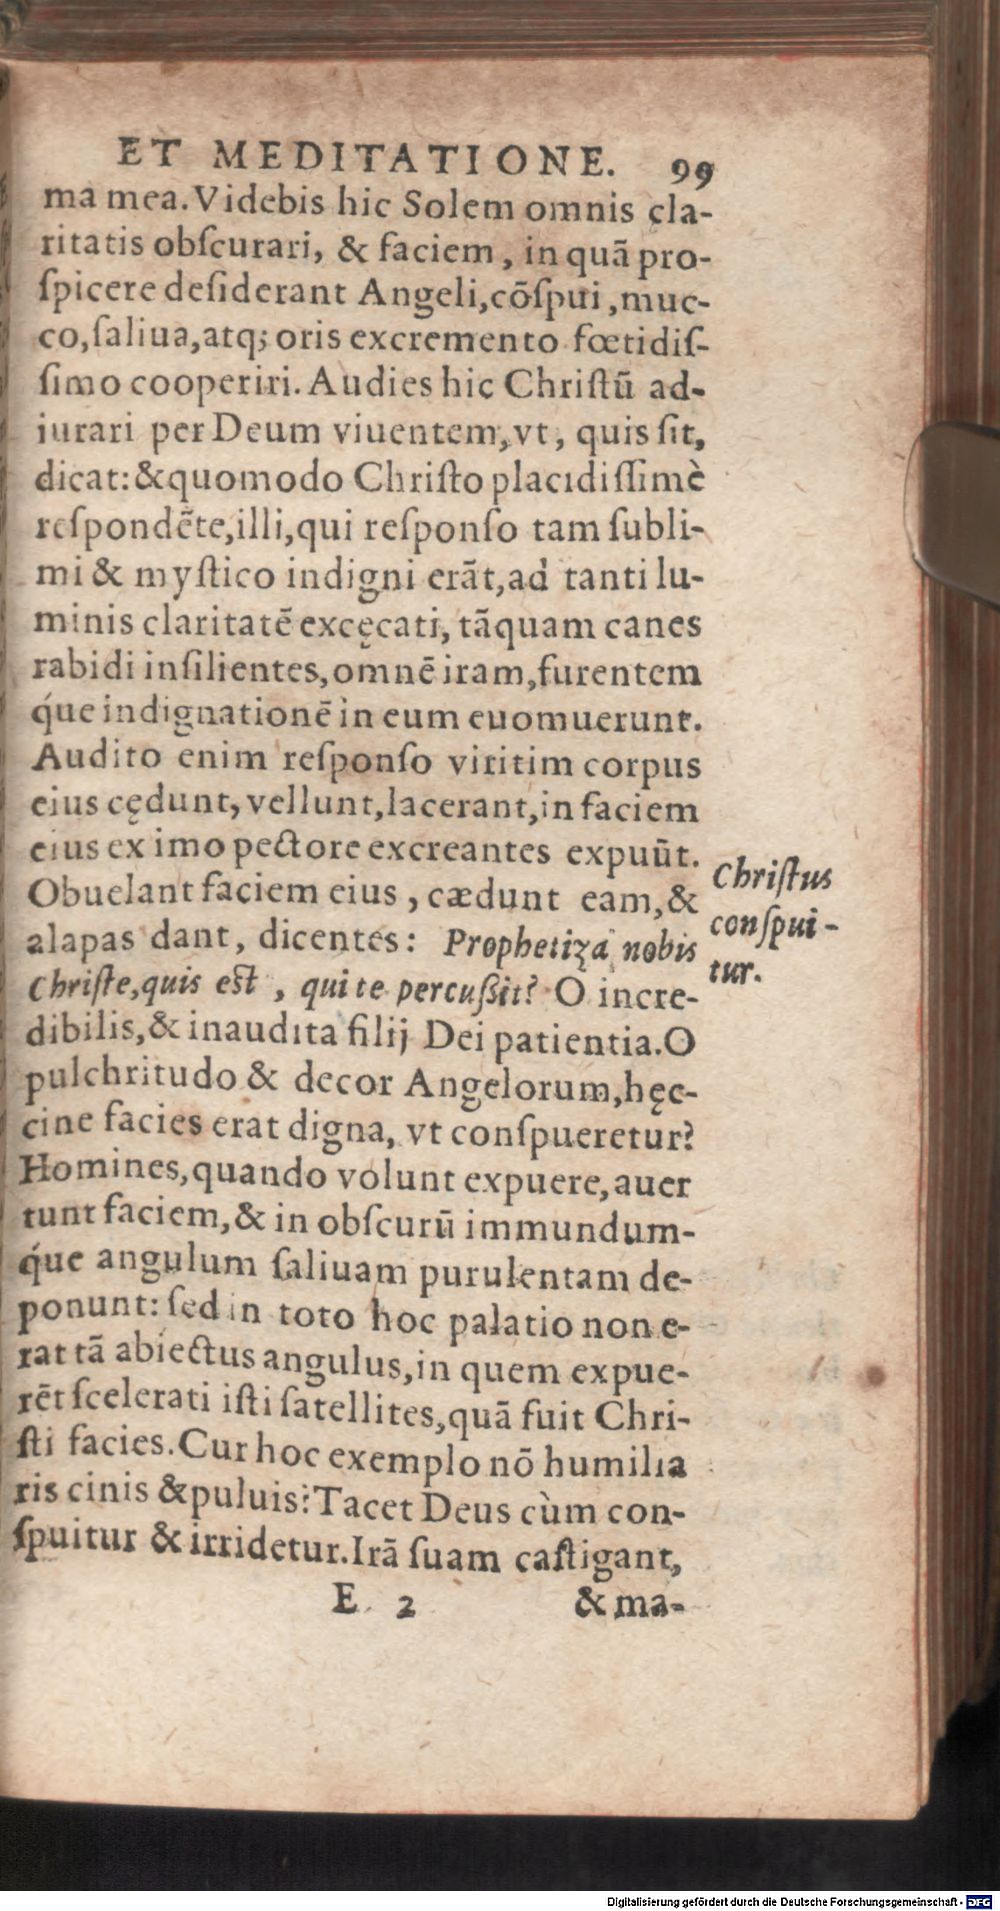 ET MEDITATIONE. 99
ma mea. Videbis hic Solem omnis cla-
ritatis obſcurari, & faciem, in quā pro-
ſpicere deſiderant Angeli, cōſpui, muc-
co, ſaliua, atq; oris excremento fœtidiſ-
ſimo cooperiri. Audies hic Chriſtū ad-
iurari per Deum viuentem, vt, quis ſit,
dicat: & quomodo Chriſto placidiſſimè
reſpondēte, illi, qui reſponſo tam ſubli-
mi & myſtico indigni erāt, ad tanti lu-
minis claritatē excęcati, tāquam canes
rabidi inſilientes, omnē iram, furentem
q́ue indignationē in eum euomuerunt.
Audito enim reſponſo viritim corpus
eius cędunt, vellunt, lacerant, in faciem
eius ex imo pectore excreantes expuūt.
Obuelant faciem eius, cædunt eam, &
alapas dant, dicentes: Prophetiza nobis
Chriſte, quis eſt, qui te percußit? O incre-
dibilis, & inaudita filij Dei patientia. O
pulchritudo & decor Angelorum, hęc-
cine facies erat digna, vt conſpueretur?
Homines, quando volunt expuere, auer
tunt faciem, & in obſcurū immundum-
q́ue angulum ſaliuam purulentam de-
ponunt: ſed in toto hoc palatio non e-
rat tā abiectus angulus, in quem expue-
rēt ſcelerati iſti ſatellites, quā fuit Chri-
ſti facies. Cur hoc exemplo nō humilia
ris cinis & puluis? Tacet Deus cùm con-
ſpuitur & irridetur. Irā ſuam caſtigant,
E 2 & ma-
Chriſtus
conſpui-
tur.
Digitalisierung gefördert durch die Deutsche Forschungsgemeinschaft - DFG